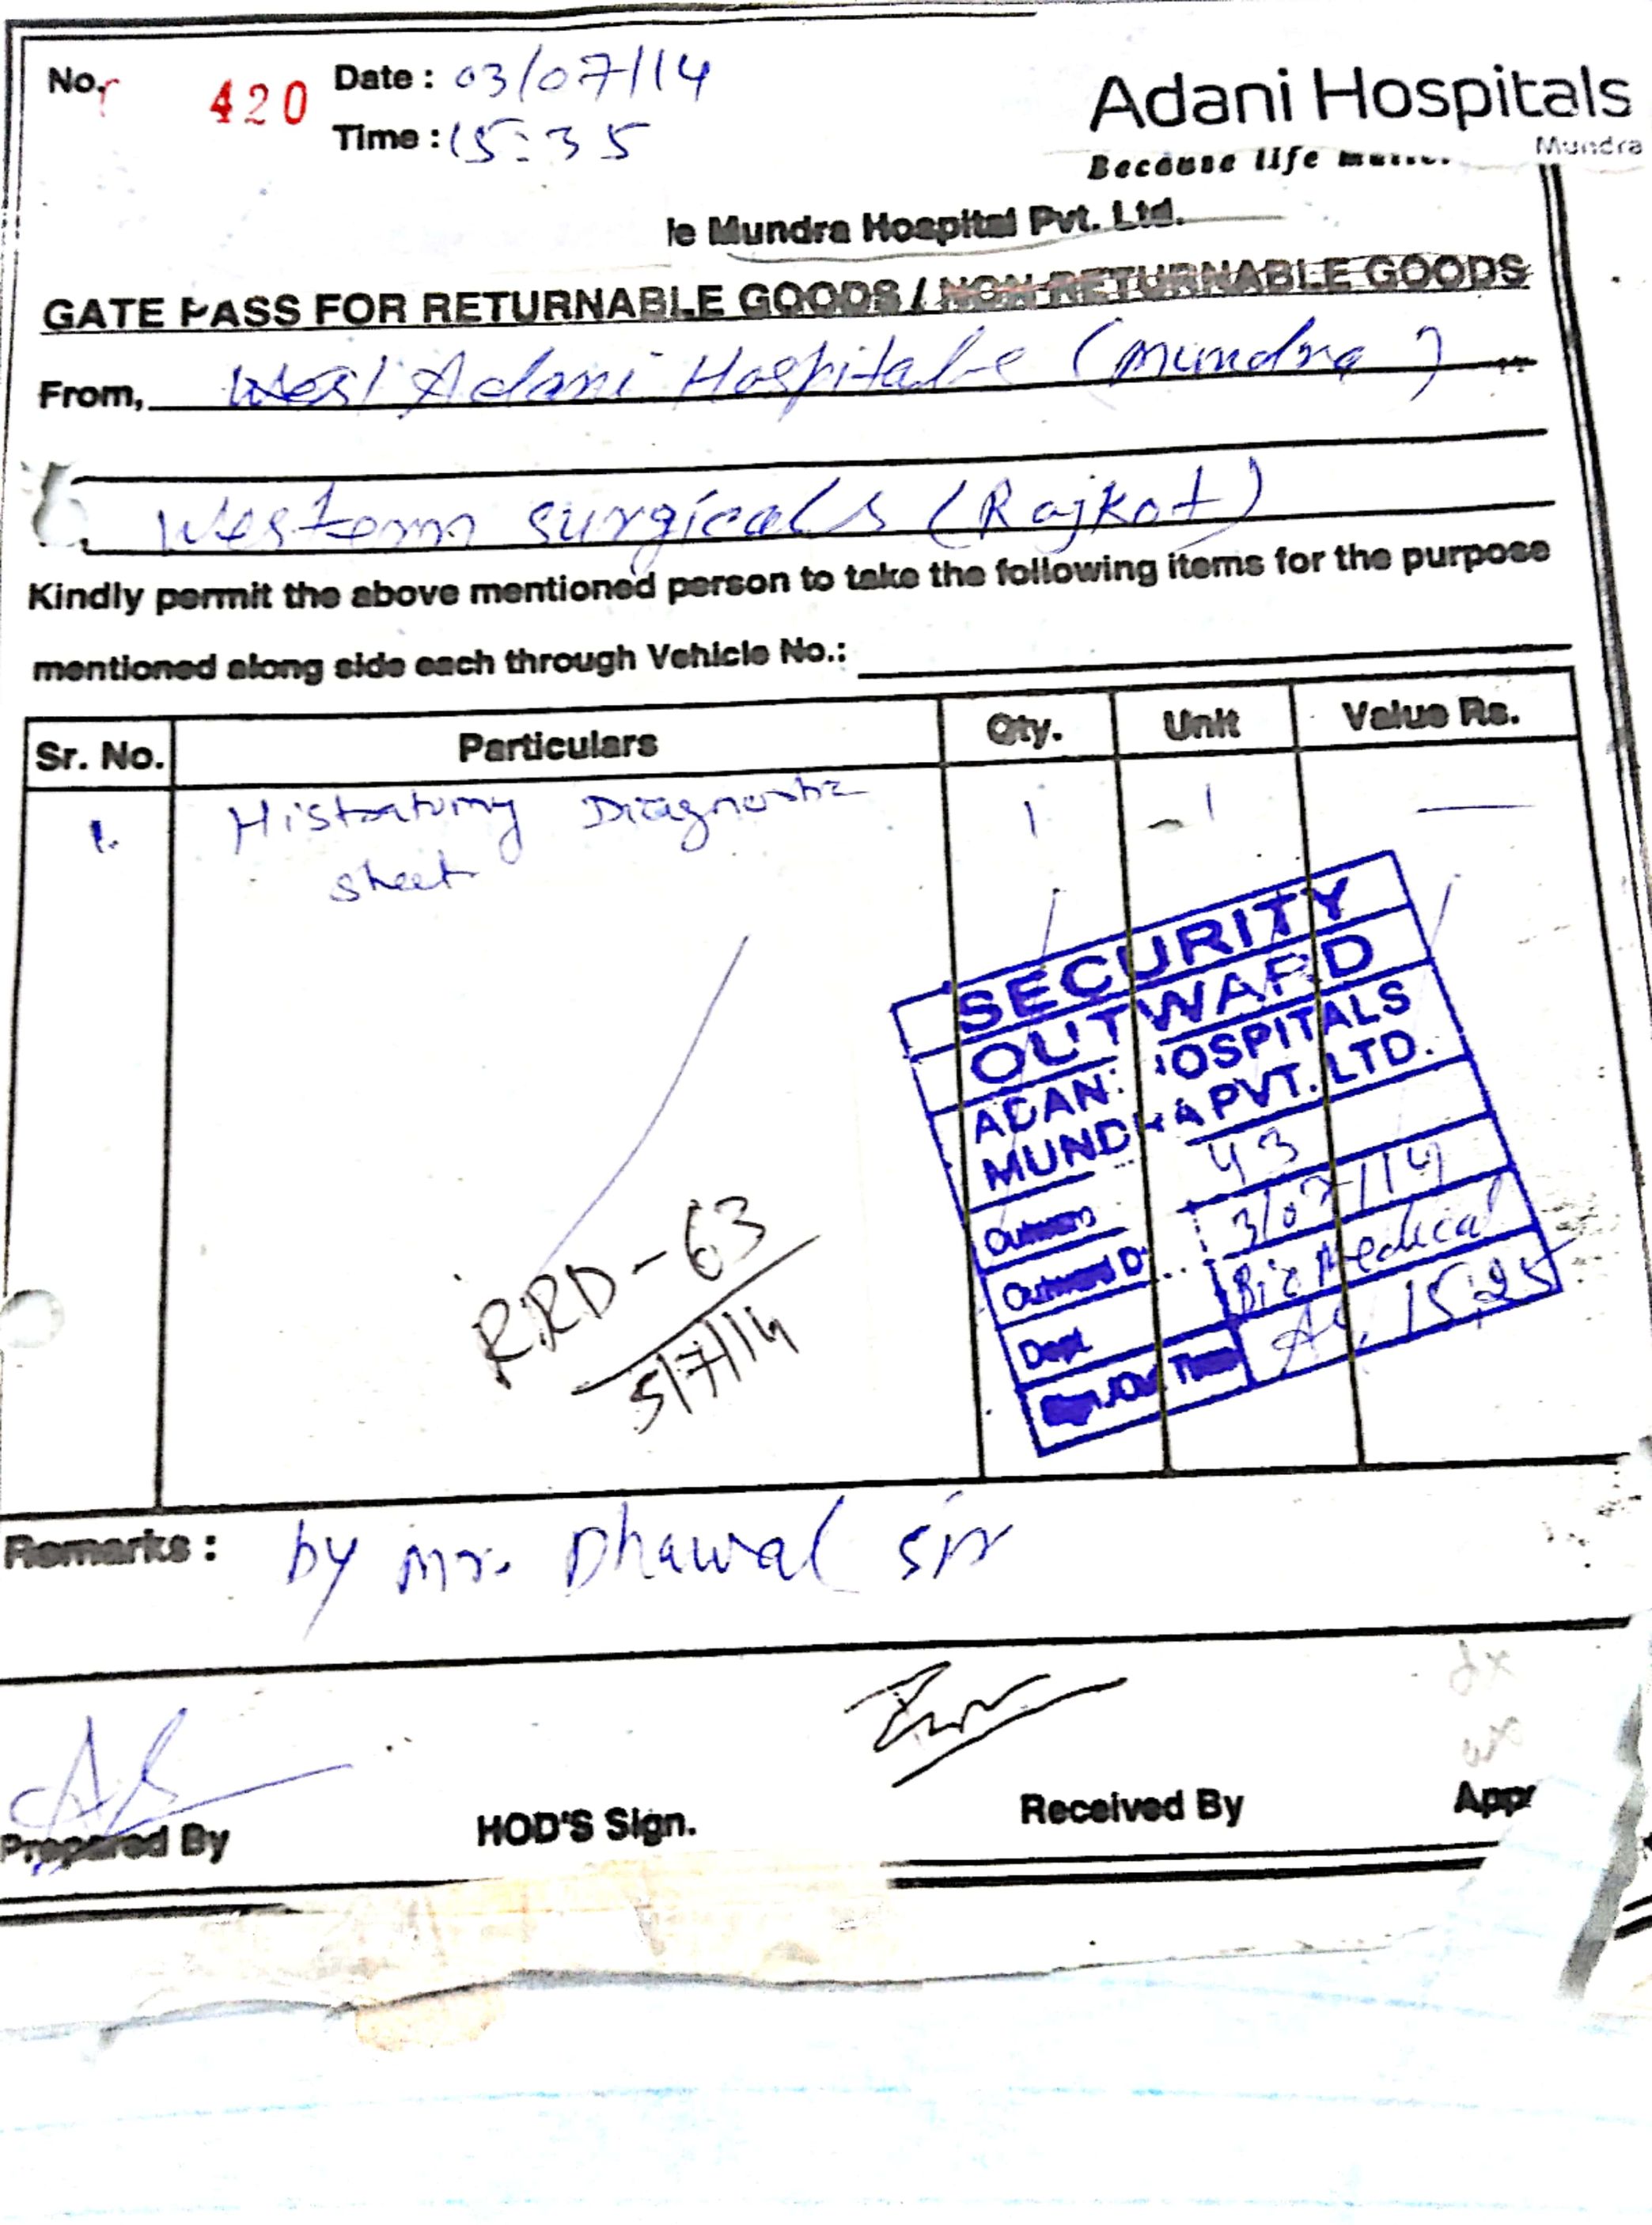 No. 420 Date : 03/07/14
Time : 15:35
Adani Hospitals
Mundra
Because life
le Mundra Hospital Pvt. Ltd.
GATE PASS FOR RETURNABLE GOODS / NON RETURNABLE GOODS
From, Adani Hospitals (Mundra)
Western surgicals (Rajkot)
Kindly permit the above mentioned person to take the following items for the purpose
mentioned along side each through Vehicle No.:
Sr. No. Particulars Qty. Unit Value Rs.
1. Diagnostic 1 1 —
sheet
SECURITY
OUTWARD
ADANI HOSPITALS
MUNDRA PVT. LTD.
43
Outward D 3/07/14
Dept Bio Medical
Time 15:25
RRD-63
5/7/14
Remarks : by Mr. Dhawal sir
Prepared By HOD'S Sign. Received By Appr